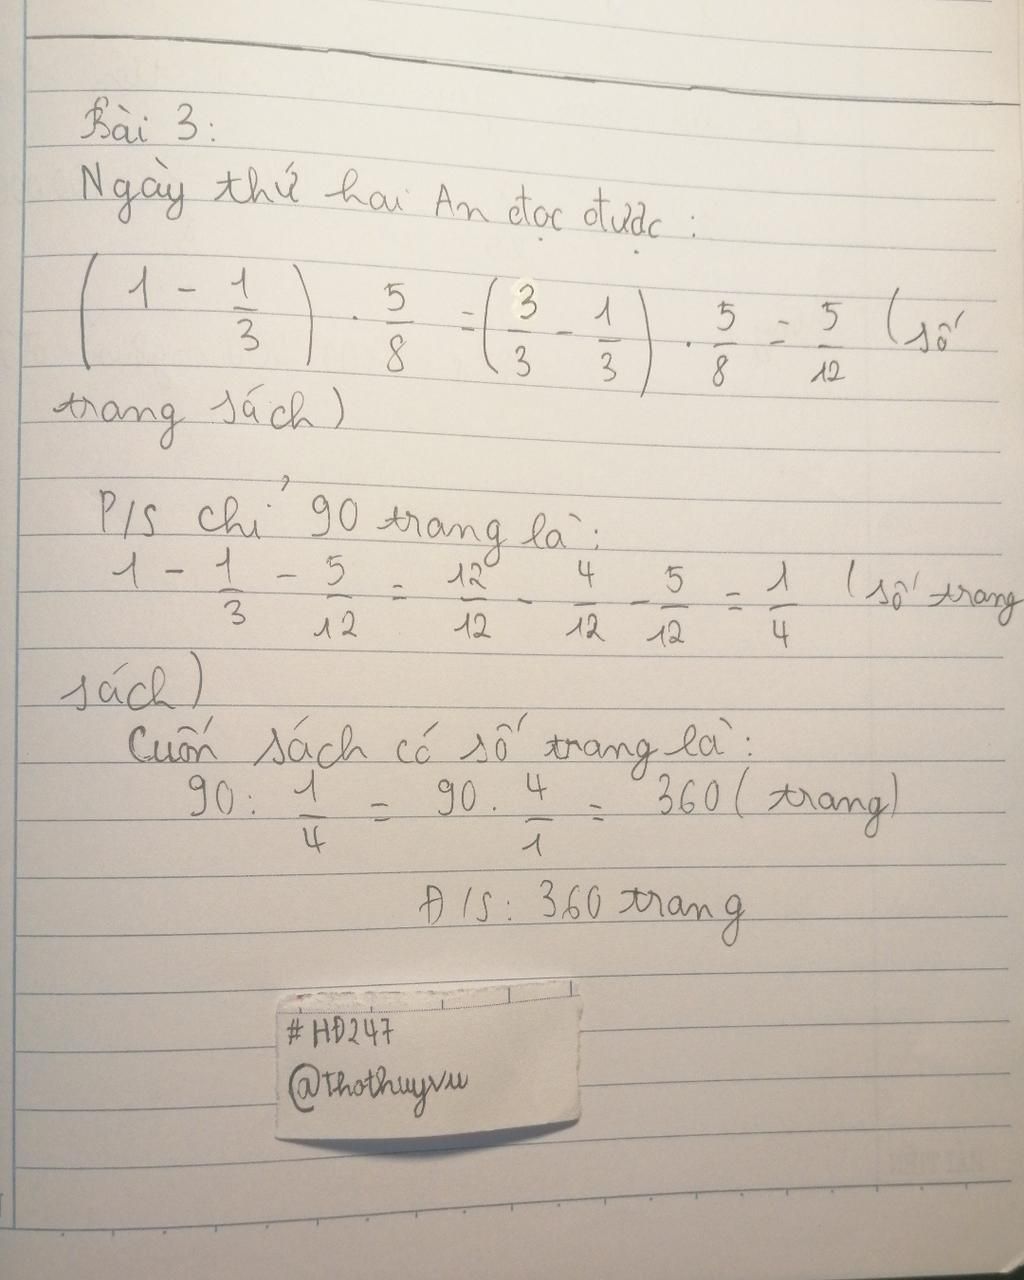 Bài 3:
Ngày thứ hai An đọc được:
(1 - 1/3) . 5/8 = (3/3 - 1/3) . 5/8 = 5/12 (số
trang sách)
P/S chỉ 90 trang là:
1 - 1/3 - 5/12 = 12/12 - 4/12 - 5/12 = 1/4 (số trang
sách)
Cuốn sách có số trang là:
90 : 1/4 = 90 . 4/1 = 360 (trang)
Đ/S: 360 trang
#HĐ247
@thothuyvu